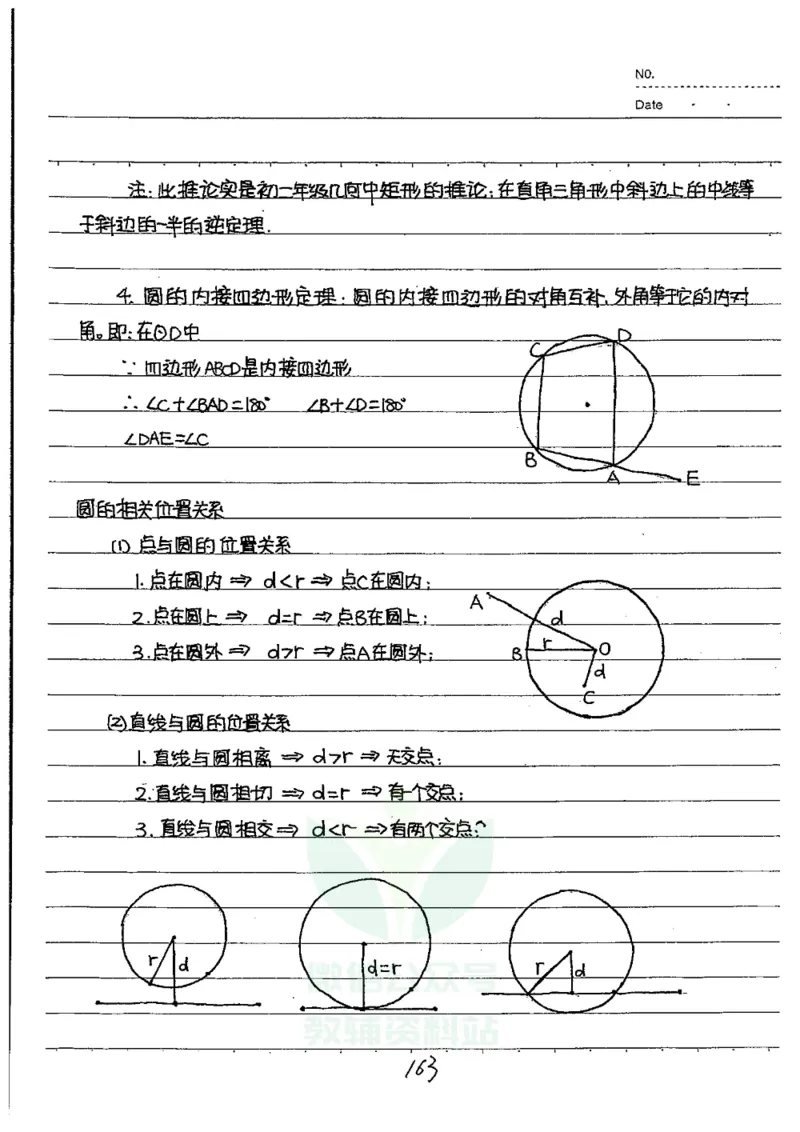 NO.
Date
注:此推论实是初一年级几何中矩形的推论:在直角三角形中斜边上的中线等
于斜边的一半的逆定理.
4. 圆的内接四边形定理:圆的内接四边形的对角互补,外角等于它的内对
角。即:在⊙D中
∵ 四边形ABCD是内接四边形
∴ ∠C+∠BAD=180° ∠B+∠D=180°
∠DAE=∠C
C
D
B
A
E
圆的相关位置关系
(1) 点与圆的位置关系
1.点在圆内 ⇒ d<r ⇒ 点C在圆内;
2.点在圆上 ⇒ d=r ⇒ 点B在圆上;
3.点在圆外 ⇒ d>r ⇒ 点A在圆外;
A
d
B
r
O
d
C
(2)直线与圆的位置关系
1.直线与圆相离 ⇒ d>r ⇒ 无交点;
2.直线与圆相切 ⇒ d=r ⇒ 有一个交点;
3.直线与圆相交 ⇒ d<r ⇒ 有两个交点;
r
d
d=r
r
d
微信公众号
教辅资料站
163